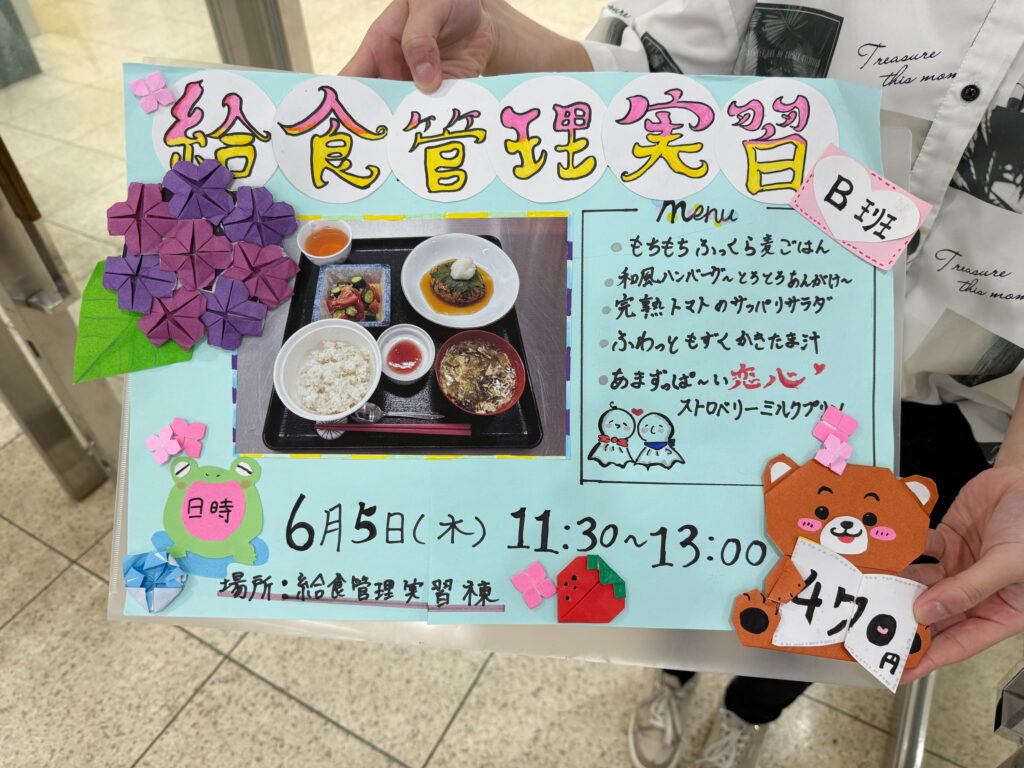 給食管理実習
B班
menu
もちもちふっくら麦ごはん
和風ハンバーグ〜とろとろあんがけ〜
完熟トマトのサッパリサラダ
ふわっともずくかきたま汁
あまずっぱ〜い恋心
ストロベリーミルクプリン
日時
6月5日(木) 11:30~13:00
場所:給食管理実習棟
470円
Treasure
this mom
Treasure
this mom